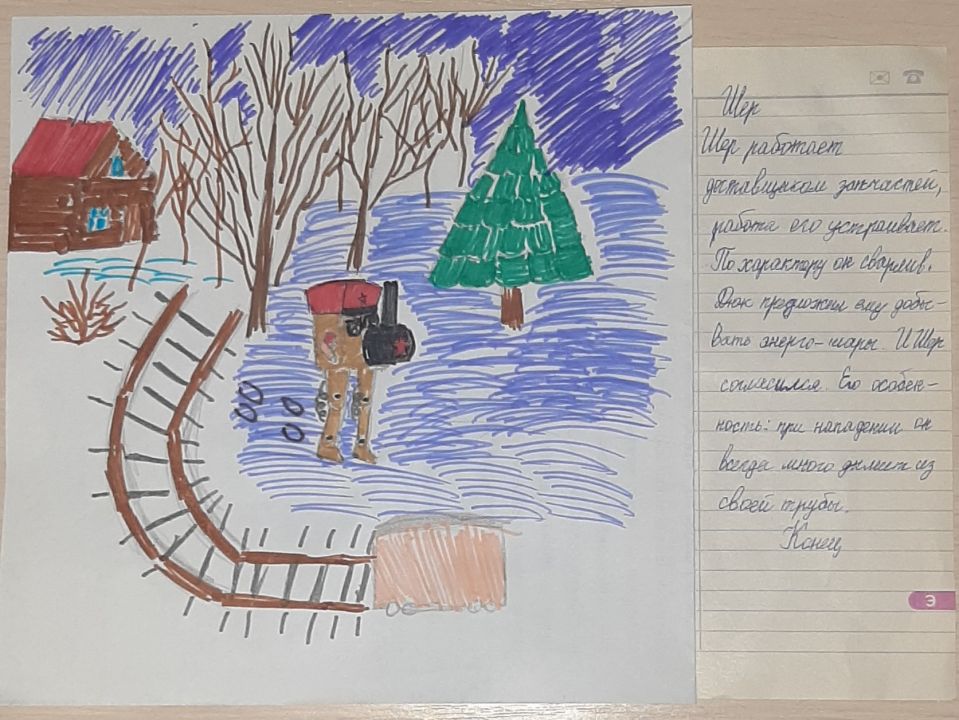 Шер
Шер работает
доставщиком запчастей,
работа его устраивает.
По характору он сварлив.
Дюк предложил ему добы-
вать энерго-шары. И Шер
согласился. Его особен-
ность: при нападении он
всегда много дымит из
своей трубы.
Конец
Э